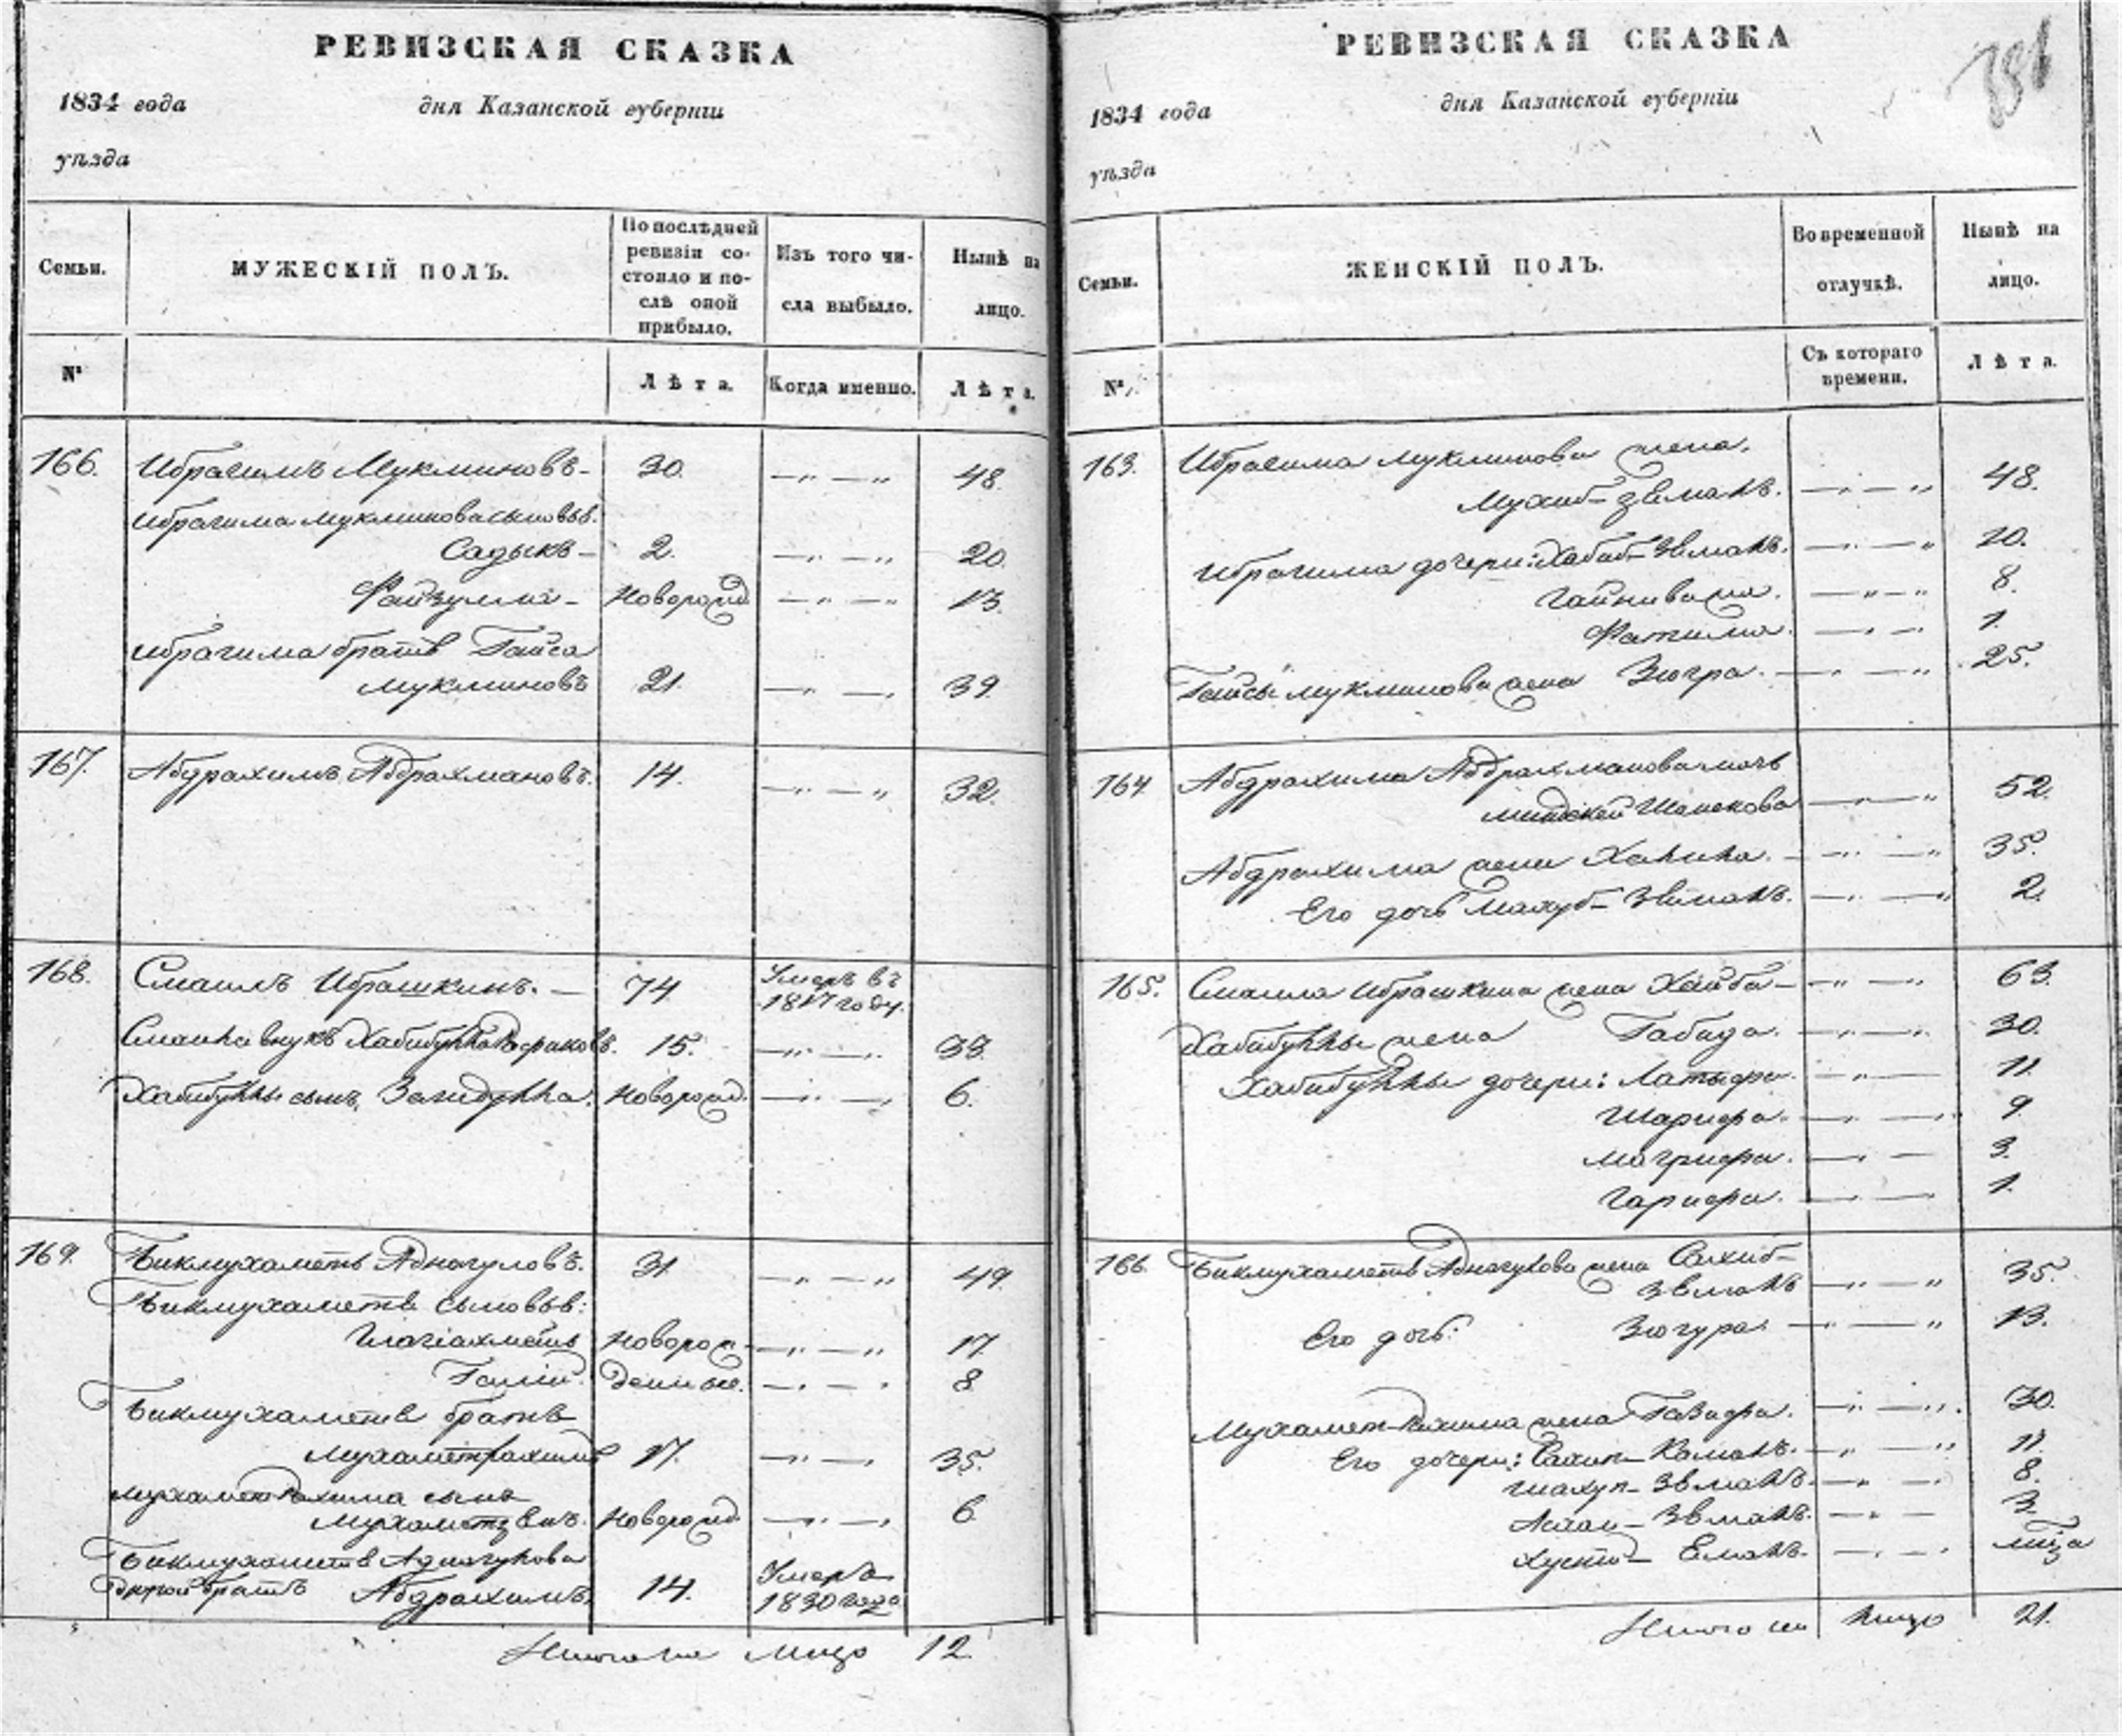 РЕВИЗСКАЯ СКАЗКА
1834 года дня Казанской губерніи
уѣзда
Семьи.
МУЖЕСКІЙ ПОЛЪ.
По послѣдней
ревизіи со-
стояло и по-
слѣ оной
прибыло.
Изъ того чи-
сла выбыло.
Нынѣ на
лицо.
№
Лѣта.
Когда именно.
Лѣта.
166. Ибрагимъ Мукминовъ 30. 48.
Ибрагима Мукминова сыновья:
Садыкъ 2. 20.
Файзулла Новорожд. 13.
Ибрагима братъ Гайса
Мукминовъ 21. 39.
167. Абдрахимъ Абдрахмановъ. 14. 32.
168. Смаилъ Ибрашкинъ. 74. Умеръ въ
1817 году.
Смаила внукъ Хабибулла 15. 33.
Хабибуллы сынъ Загидулла. Новорожд. 6.
169. Бикмухаметъ Аднагуловъ. 31. 49.
Бикмухаметя сыновья:
Новорож- 17.
Галій. денные. 8
Бикмухаметя братъ
Мухаметрахимъ 17. 35.
Мухаметрахима сынъ
Новорожд. 6
Бикмухаметя Аднагулова
другой братъ Абдрахимъ 14. Умеръ
1830 года
Итого на лицо 12.
РЕВИЗСКАЯ СКАЗКА
1834 года дня Казанской губерніи
уѣзда
Семьи.
ЖЕНСКІЙ ПОЛЪ.
Во временной
отлучкѣ.
Нынѣ на
лицо.
№
Съ котораго
времени.
Лѣта.
163. Ибрагима Мукминова жена
48.
Ибрагима дочери: 10.
8.
Фатима. 1.
Гайсы Мукминова жена Зюгра. 25.
164. Абдрахима Абдрахманова мать
52.
Абдрахима жена 35.
Его дочь 2.
165. Смаила Ибрашкина жена Хаиба 63.
Хабибуллы жена Габида. 30.
Хабибуллы дочери: Латыфа. 11.
Шарифа. 9.
Магрифа. 3.
Гарифа. 1.
166. Бикмухаметя Аднагулова жена Сахиб-
35.
Его дочь: Зюгура. 13.
Мухамет-Рахима жена 30.
Его дочери: 11.
8.
3.
Итого на лицо 21.